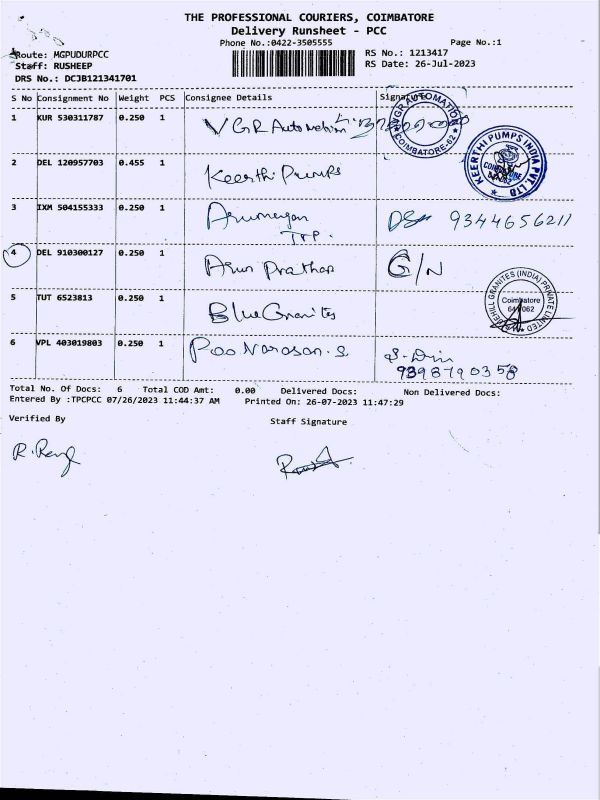 THE PROFESSIONAL COURIERS, COIMBATORE
Delivery Runsheet - PCC
Phone No.:0422-3505555
Page No.:1
Route: MGPUDURPCC
RS No.: 1213417
Staff: RUSHEEP
RS Date: 26-Jul-2023
DRS No.: DCJB121341701
S No Consignment No Weight PCS Consignee Details Signature
1 KUR 530311787 0.250 1 VGR Automation
VGR AUTOMATION COIMBATORE-62
2 DEL 120957703 0.455 1 Keerthi Pumps
KEERTHI PUMPS INDIA PVT. LTD COIMBATORE
3 IXM 504155333 0.250 1 Arumugan 9344656211
4 DEL 910300127 0.250 1 Arun Prathap G/N
5 TUT 6523813 0.250 1 BlueGranites
HILL GRANITES (INDIA) PRIVATE LIMITED Coimbatore
6 VPL 403019803 0.250 1 Poo Narasan.S
9398790358
Total No. Of Docs: 6 Total COD Amt: 0.00 Delivered Docs: Non Delivered Docs:
Entered By :TPCPCC 07/26/2023 11:44:37 AM Printed On: 26-07-2023 11:47:29
Verified By
Staff Signature